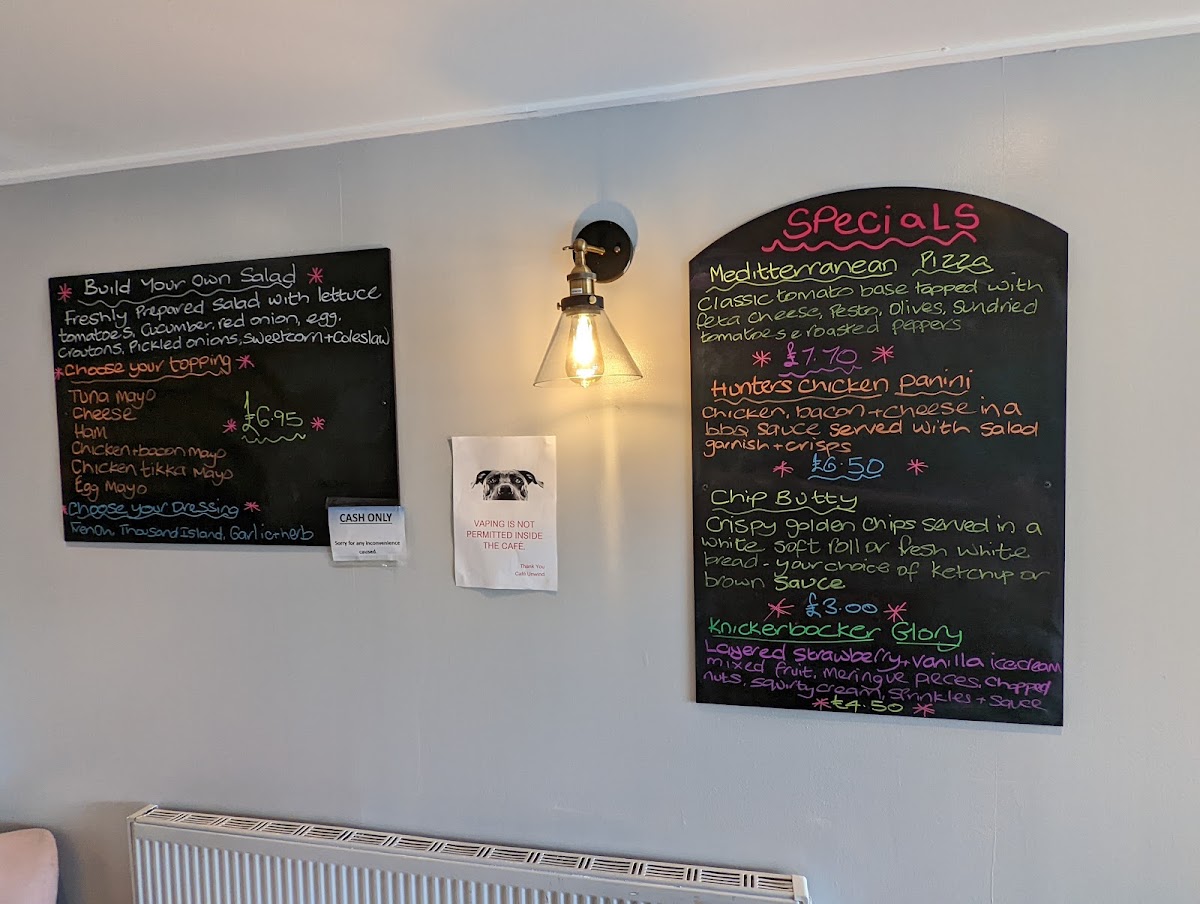 Build Your Own Salad
Freshly Prepared Salad with lettuce
tomatoe's, Cucumber, red onion, egg,
Croutons, Pickled onions, Sweetcorn + Coleslaw
Choose your topping
Tuna Mayo
Cheese
Ham
Chicken + bacon Mayo
Chicken tikka Mayo
Egg Mayo
£6.95
Choose your Dressing
French, Thousand Island, Garlic + herb
CASH ONLY
Sorry for any inconvenience
caused.
VAPING IS NOT
PERMITTED INSIDE
THE CAFE.
Thank You
Café Unwind
SPeciaLS
Meditterranean Pizza
Classic tomato base topped with
feta cheese, Pesto, Olives, Sundried
tomatoes & roasted peppers
£7.70
Hunters Chicken Panini
Chicken, bacon + cheese in a
bbq sauce served with salad
garnish + crisps
£6.50
Chip Butty
Crispy golden chips served in a
white soft roll or fresh white
bread - your choice of ketchup or
brown Sauce
£3.00
Knickerbocker Glory
Layered Strawberry + vanilla icecream
mixed fruit, meringue pieces, chopped
nuts, squirty cream, Sprinkles + Sauce
£4.50